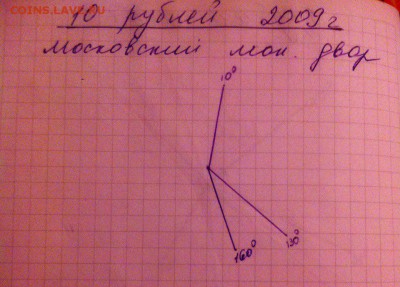 COINS.LAVE.RU
10 рублей 2009г
Московский мон. двор
10°
130°
160°